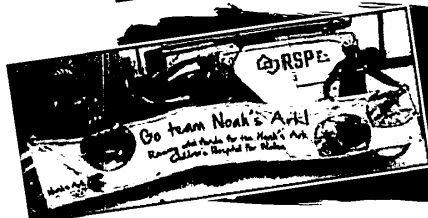 RSP
Go team Noah's Ark!
Rowing and funds for the Noah's Ark
Children's Hospital for Wales
Noah's Ark